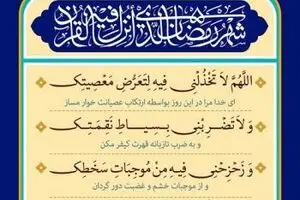 شهر رمضان الذی أنزل فیه القرآن
اللَّهُمَّ لاَ تَخْذُلْنِی فِیهِ لِتَعَرُّضِ مَعْصِیَتِکَ
ای خدا مرا در این روز بواسطه ارتکاب عصیانت خوار مساز
وَ لاَ تَضْرِبْنِی بِسِیَاطِ نَقِمَتِکَ
و به ضرب تازیانه قهرت کیفر مکن
وَ زَحْزِحْنِی فِیهِ مِنْ مُوجِبَاتِ سَخَطِکَ
و از موجبات خشم و غضبت دور گردان